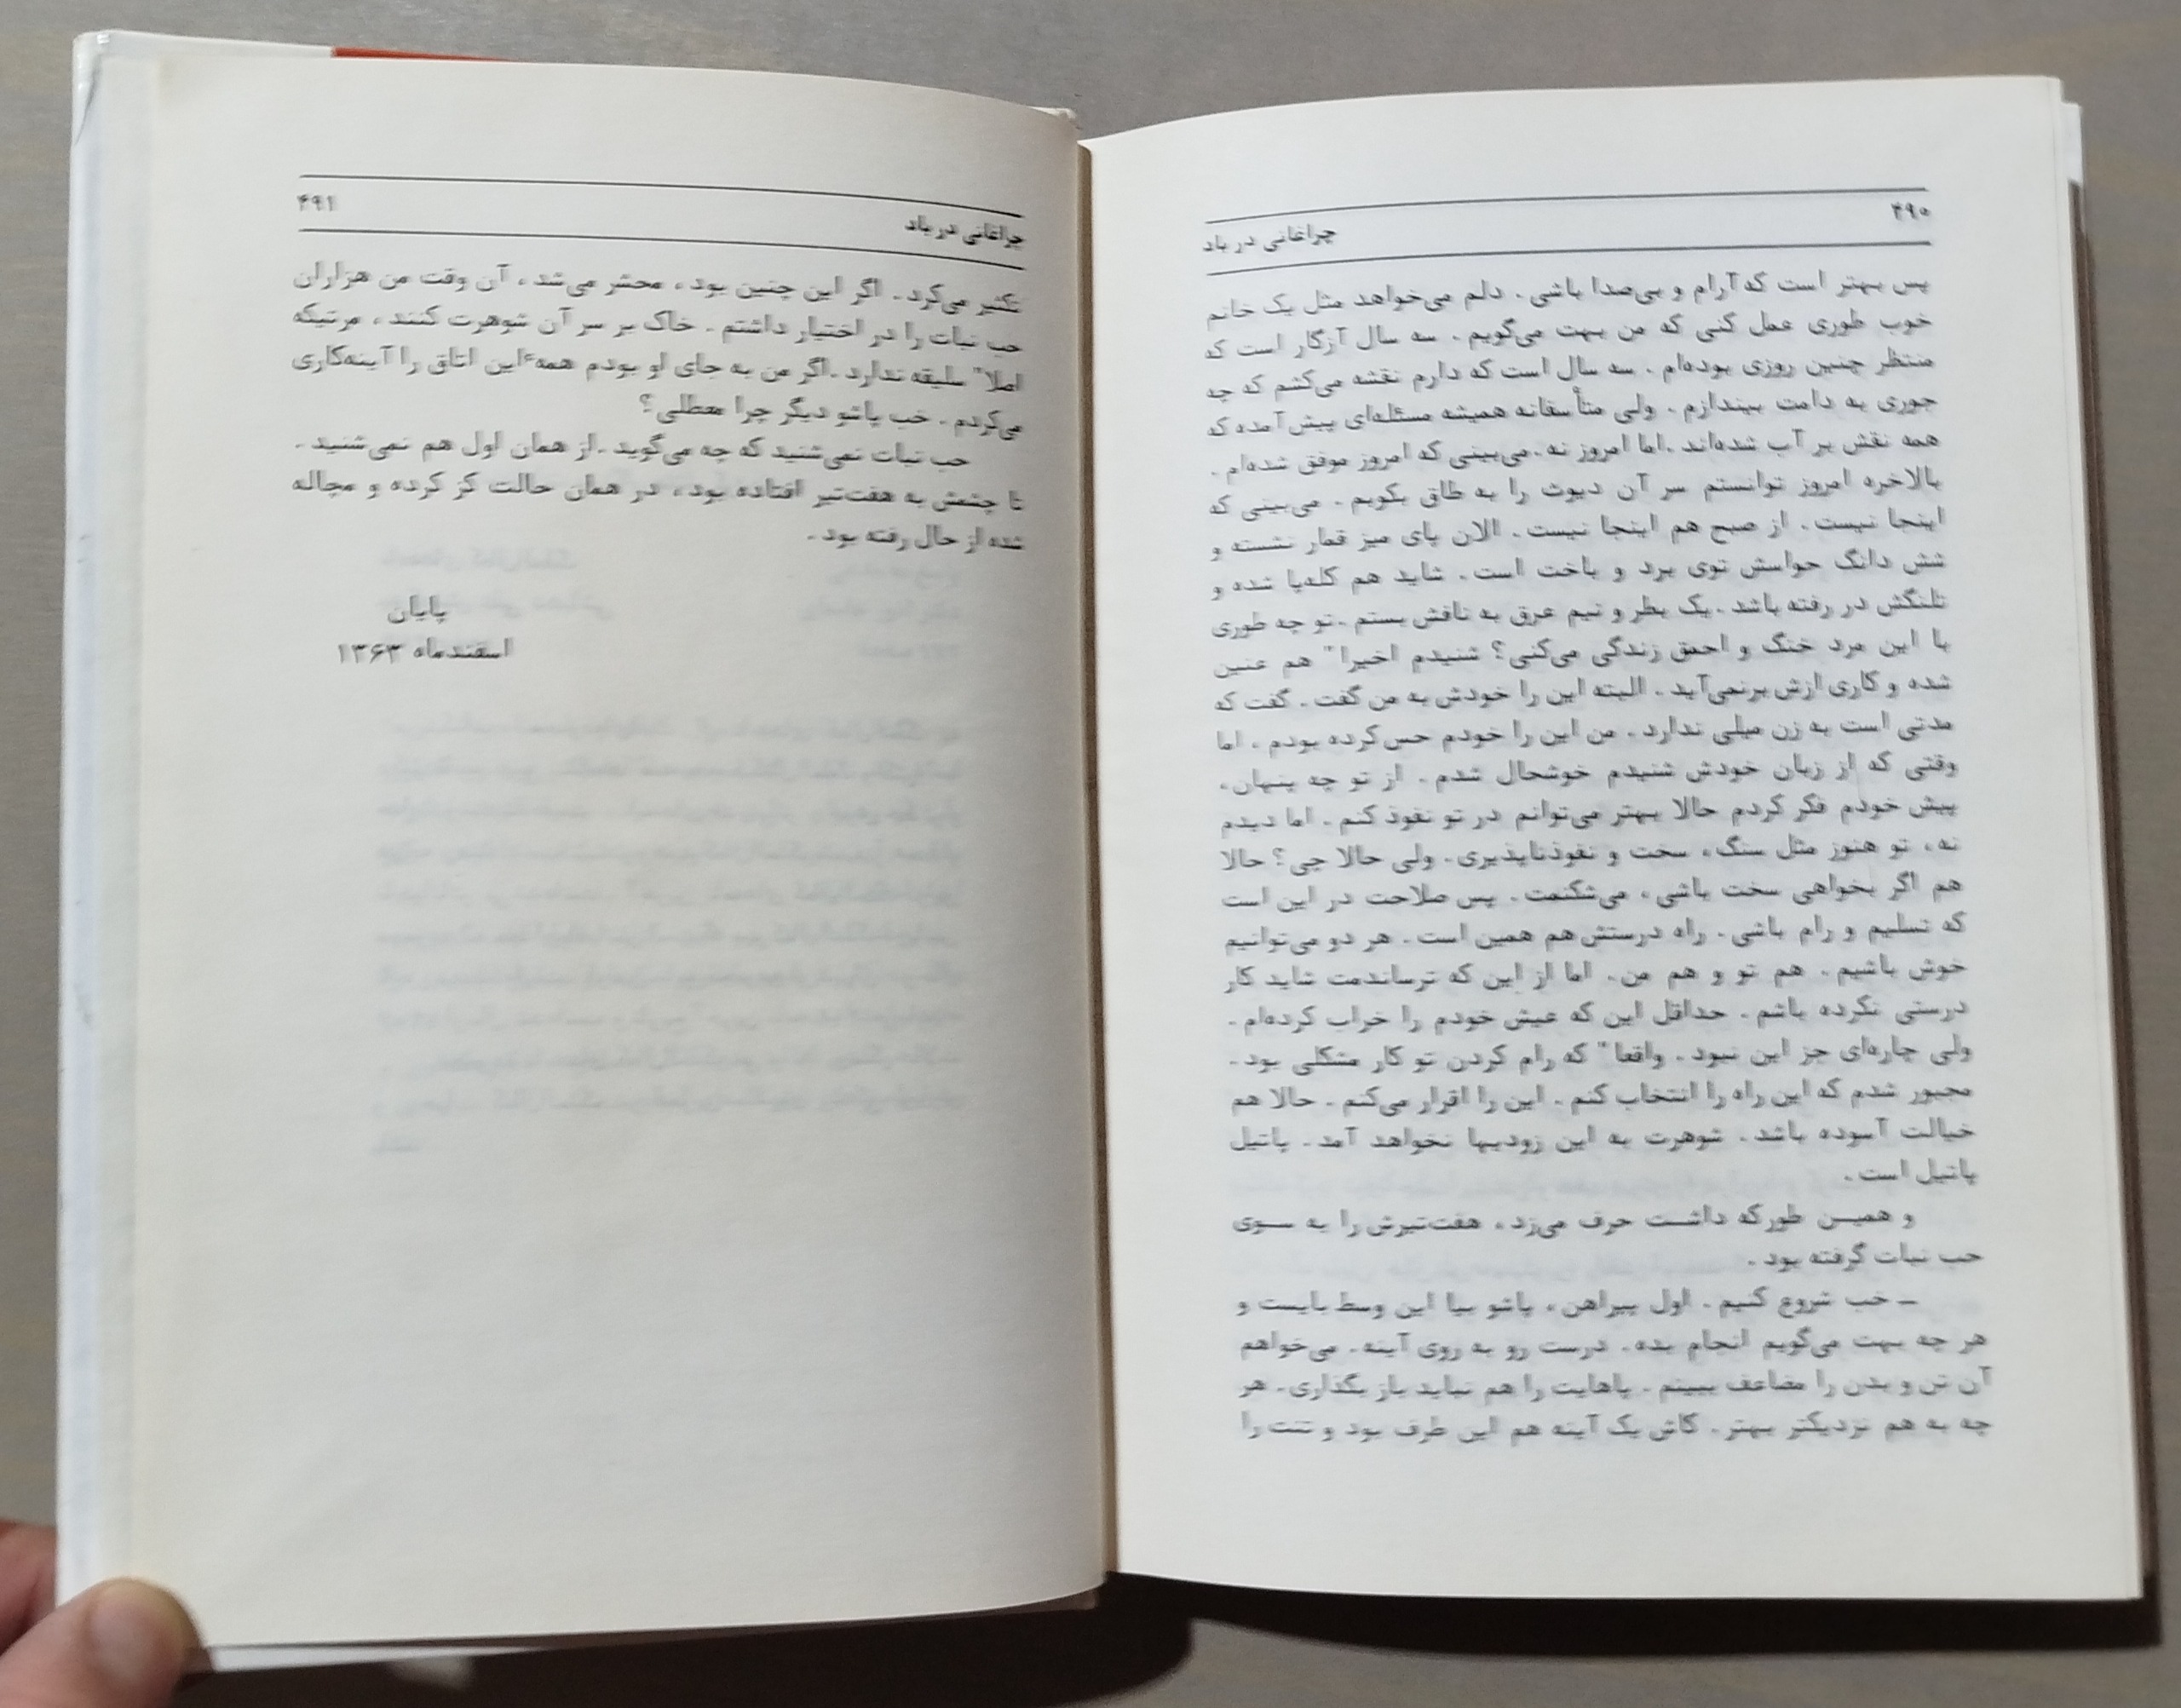 ۴۹۰
چراغانی در باد
پس بهتر است که آرام و بی‌صدا باشی. دلم می‌خواهد مثل یک خانم
خوب طوری عمل کنی که من بهت می‌گویم. سه سال آزگار است که
منتظر چنین روزی بوده‌ام. سه سال است که دارم نقشه می‌کشم که چه
جوری به دامت بیندازم. ولی متأسفانه همیشه مسئله‌ای پیش‌آمده که
همه نقش بر آب شده‌اند. اما امروز نه. می‌بینی که امروز موفق شده‌ام.
بالاخره امروز توانستم سر آن دیوث را به طاق بکوبم. می‌بینی که
اینجا نیست. از صبح هم اینجا نیست. الان پای میز قمار نشسته و
شش دانگ حواسش توی برد و باخت است. شاید هم کله‌پا شده و
تلنگش در رفته باشد. یک بطر و نیم عرق به نافش بستم. تو چه طوری
با این مرد خنگ و احمق زندگی می‌کنی؟ شنیدم اخیرا" هم عنین
شده و کاری ازش برنمی‌آید. البته این را خودش به من گفت. گفت که
مدتی است به زن میلی ندارد. من این را خودم حس کرده بودم. اما
وقتی که از زبان خودش شنیدم خوشحال شدم. از تو چه پنهان،
پیش خودم فکر کردم حالا بهتر می‌توانم در تو نفوذ کنم. اما دیدم
نه، تو هنوز مثل سنگ، سخت و نفوذناپذیری. ولی حالا چی؟ حالا
هم اگر بخواهی سخت باشی، می‌شکنمت. پس صلاحت در این است
که تسلیم و رام باشی. راه درستش هم همین است. هر دو می‌توانیم
خوش باشیم. هم تو و هم من. اما از این که ترساندمت شاید کار
درستی نکرده باشم. حداقل این که عیش خودم را خراب کرده‌ام.
ولی چاره‌ای جز این نبود. واقعا" که رام کردن تو کار مشکلی بود.
مجبور شدم که این راه را انتخاب کنم. این را اقرار می‌کنم. حالا هم
خیالت آسوده باشد. شوهرت به این زودیها نخواهد آمد. پاتیل
پاتیل است.
و همین طور که داشت حرف می‌زد، هفت‌تیرش را به سوی
حب نبات گرفته بود.
ــ خب شروع کنیم. اول پیراهن، پاشو بیا این وسط بایست و
هر چه بهت می‌گویم انجام بده. درست رو به روی آینه. می‌خواهم
آن تن و بدن را مضاعف ببینم. پاهایت را هم نباید باز بگذاری. هر
چه به هم نزدیکتر بهتر. کاش یک آینه هم این طرف بود و تنت را
۴۹۱
چراغانی در باد
تکثیر می‌کرد. اگر این چنین بود، محشر می‌شد، آن وقت من هزاران
حب نبات را در اختیار داشتم. خاک بر سر آن شوهرت کنند، مرتیکه
اصلا" سلیقه ندارد. اگر من به جای او بودم همهٔ این اتاق را آینه‌کاری
می‌کردم. خب پاشو دیگر چرا معطلی؟
حب نبات نمی‌شنید که چه می‌گوید. از همان اول هم نمی‌شنید.
تا چشمش به هفت‌تیر افتاده بود، در همان حالت کز کرده و مچاله
شده از حال رفته بود.
پایان
اسفندماه ۱۳۶۳